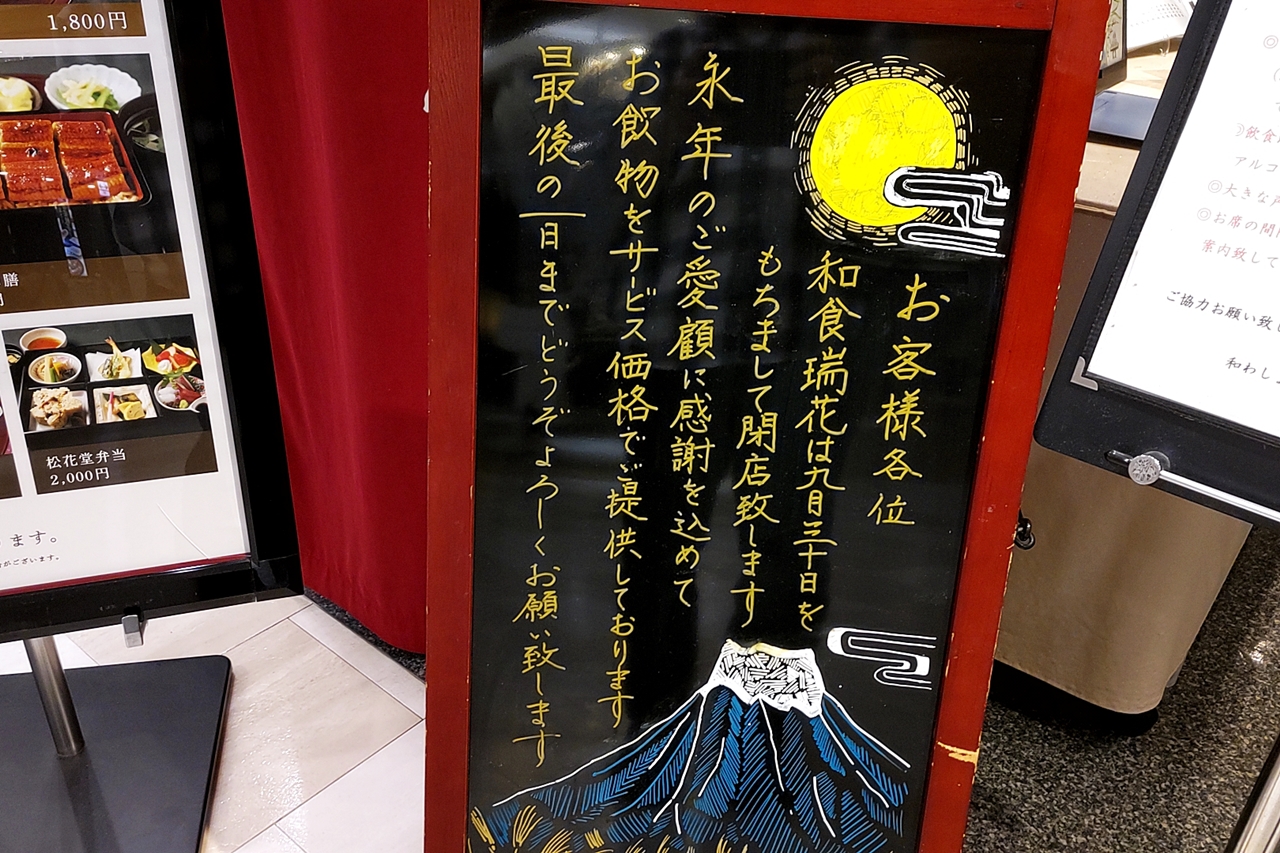 お客様各位
和食瑞花は九月三十日を
もちまして閉店致します
永年のご愛顧に感謝を込めて
お飲物をサービス価格でご提供しております
最後の一日までどうぞよろしくお願い致します
1,800円
膳
円
松花堂弁当
2,000円
ます。
がございます。
◎
飲食
アルコ
◎大きな声
◎お席の間
案内致して
ご協力お願い致し
和わし